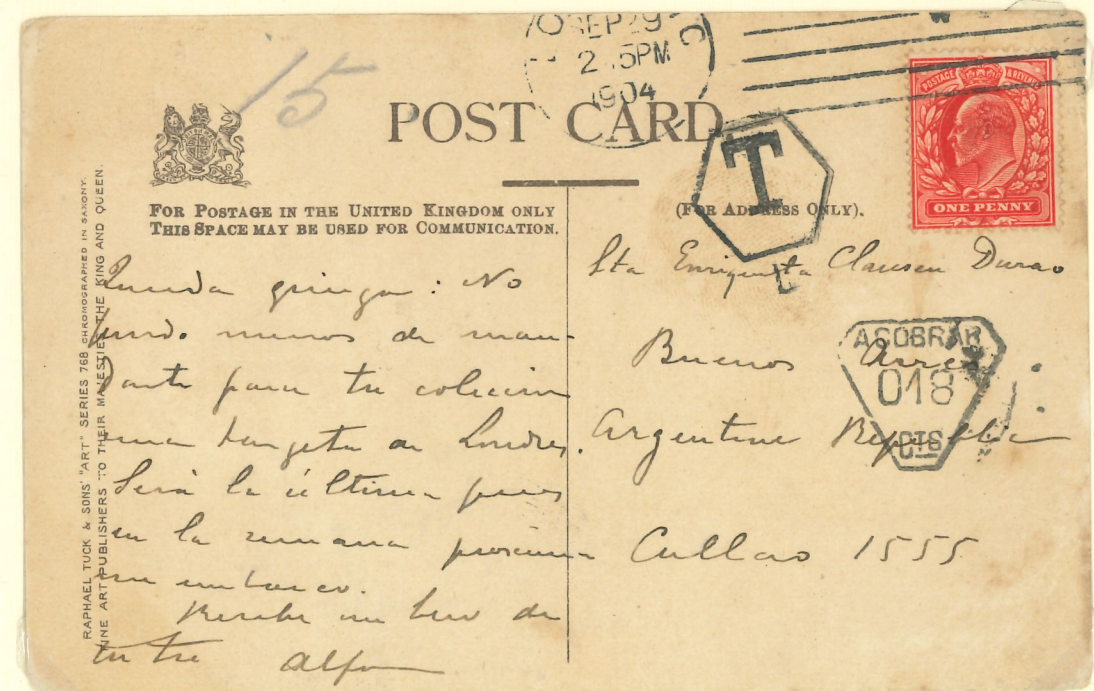 15
SEP 29
2 15PM
1904
POST CARD.
POSTAGE & REVENUE
ONE PENNY
T
L
FOR POSTAGE IN THE UNITED KINGDOM ONLY
THIS SPACE MAY BE USED FOR COMMUNICATION.
(FOR ADDRESS ONLY).
RAPHAEL TUCK & SONS' "ART" SERIES 768 CHROMOGRAPHED IN SAXONY.
FINE ART PUBLISHERS TO THEIR MAJESTIES THE KING AND QUEEN.
Querida gringa: No
puedo menos de man-
darte para tu colección
una targeta de Londres.
Será la última pues
en la semana procsima
me embarco.
Recibe un beso de
tu tío Alfonso
Sta Enriqueta Clausen Durao
Buenos Aires
Argentine Republic
Callao 1555
A COBRAR
018
CTS